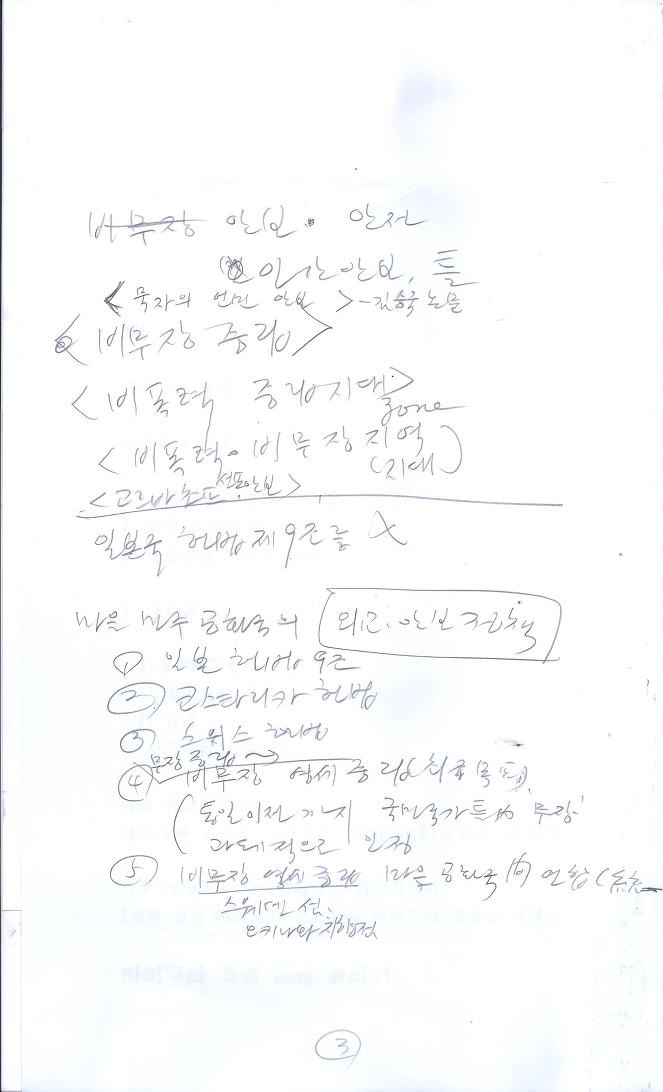 비무장 안보 · 안전
인간안보, 틀
<묵자의 인민 안보> - 김승국 논문
<비무장 중립>
<비폭력 중립지대>
zone
<비폭력 · 비무장지역
(지대)
<고르바초프 안보>
일본국 헌법 제9조를
마을 민주 공화국의 외교·안보 정책
① 일본 헌법 9조
② 코스타리카 헌법
③ 스위스 헌법
무장중립 →
④ 비무장 영세중립이 최종 목표
(통일 이전까지 국민국가 틀 무장
과도적으로 인정
⑤ 비무장 영세중립 마을 공화국 연합 (
스웨덴 선.
오키나와
3